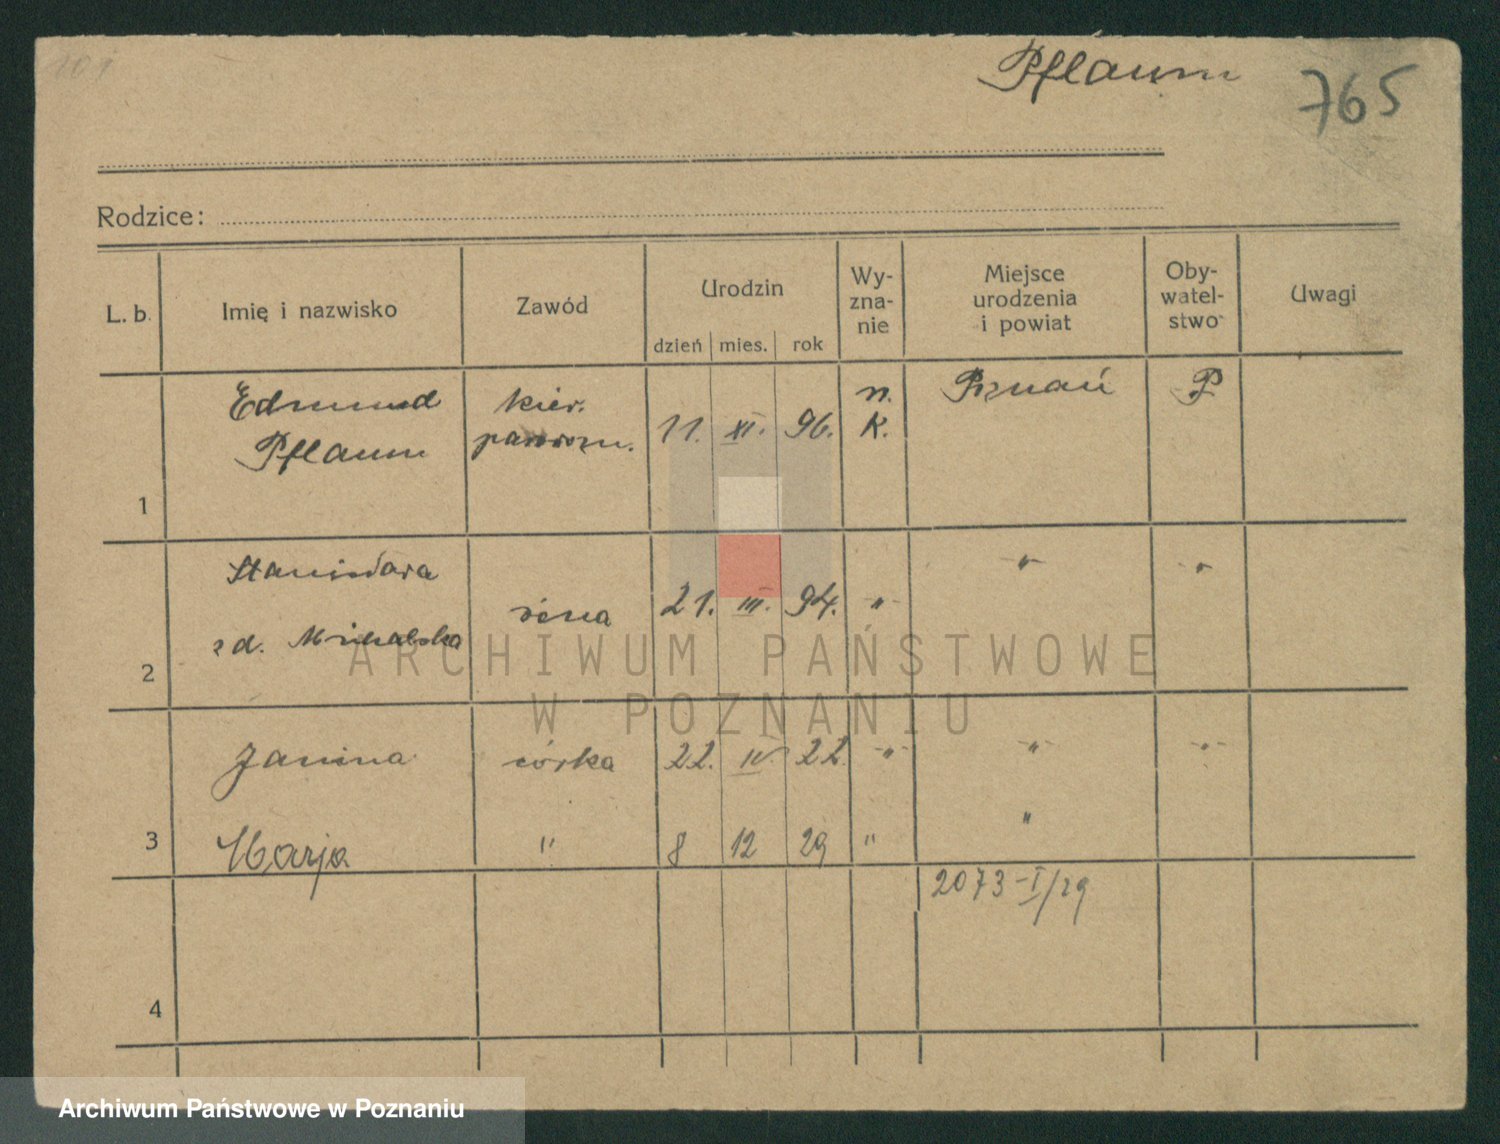 101
Pflaum
765
Rodzice:
L. b. Imię i nazwisko Zawód Urodzin Wy- Miejsce Oby- Uwagi
zna- urodzenia watel-
nie i powiat stwo
dzień mies. rok
Edmund kier. 11. XI. 96. n. Poznań P
Pflaum K.
1
Stanisława " "
żona 21. III. 94. "
zd. Michalska
2
ARCHIWUM PAŃSTWOWE
W POZNANIU
Janina córka 22. IV. 22. " " "
3 Marja " 8 12 29 " "
2073-I/29
4
Archiwum Państwowe w Poznaniu